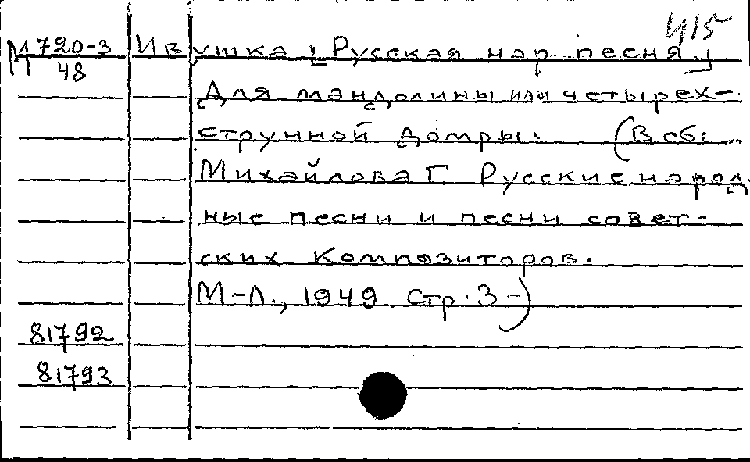 415
М 720-3 Ивушка [Русская нар. песня]
48
Для мандолины или четырех-
струнной домры. (В сб:
Михайлова Г. Русские народ
ные песни и песни совет-
ских композиторов.
М-Л., 1949 стр. 3-)
81792
81793